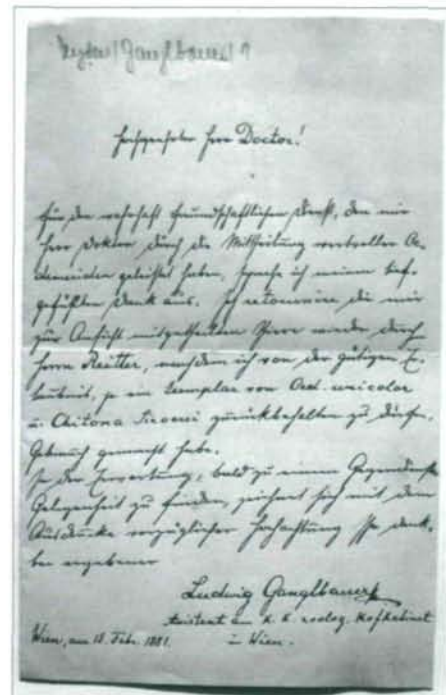 Heyden/Ganglbauer/1
Hochgeehrter Herr Doctor!
Für den wahrhaft freundschaftlichen Dienst, den mir
Herr Doktor durch die Mittheilung wertvoller Oe-
demeriden geleistet haben, spreche ich meinen tief-
gefühlten Dank aus. Ich retournire die mir
zur Ansicht mitgetheilten Thiere wieder durch
Herrn Reitter, nachdem ich von der gütigen Er-
laubnis, je ein Exemplar von Oed. unicolor
u. Chitona zurückbehalten zu dürfen,
Gebrauch gemacht habe.
In der Erwartung, bald zu einem Gegendienste
Gelegenheit zu finden, zeichnet sich mit dem
Ausdrucke vorzüglicher Hochachtung Ihr dank-
bar ergebener
Ludwig Ganglbauer
Assistent am k. k. zoolog. Hofkabinet
in Wien.
Wien, am 18. Febr. 1881.